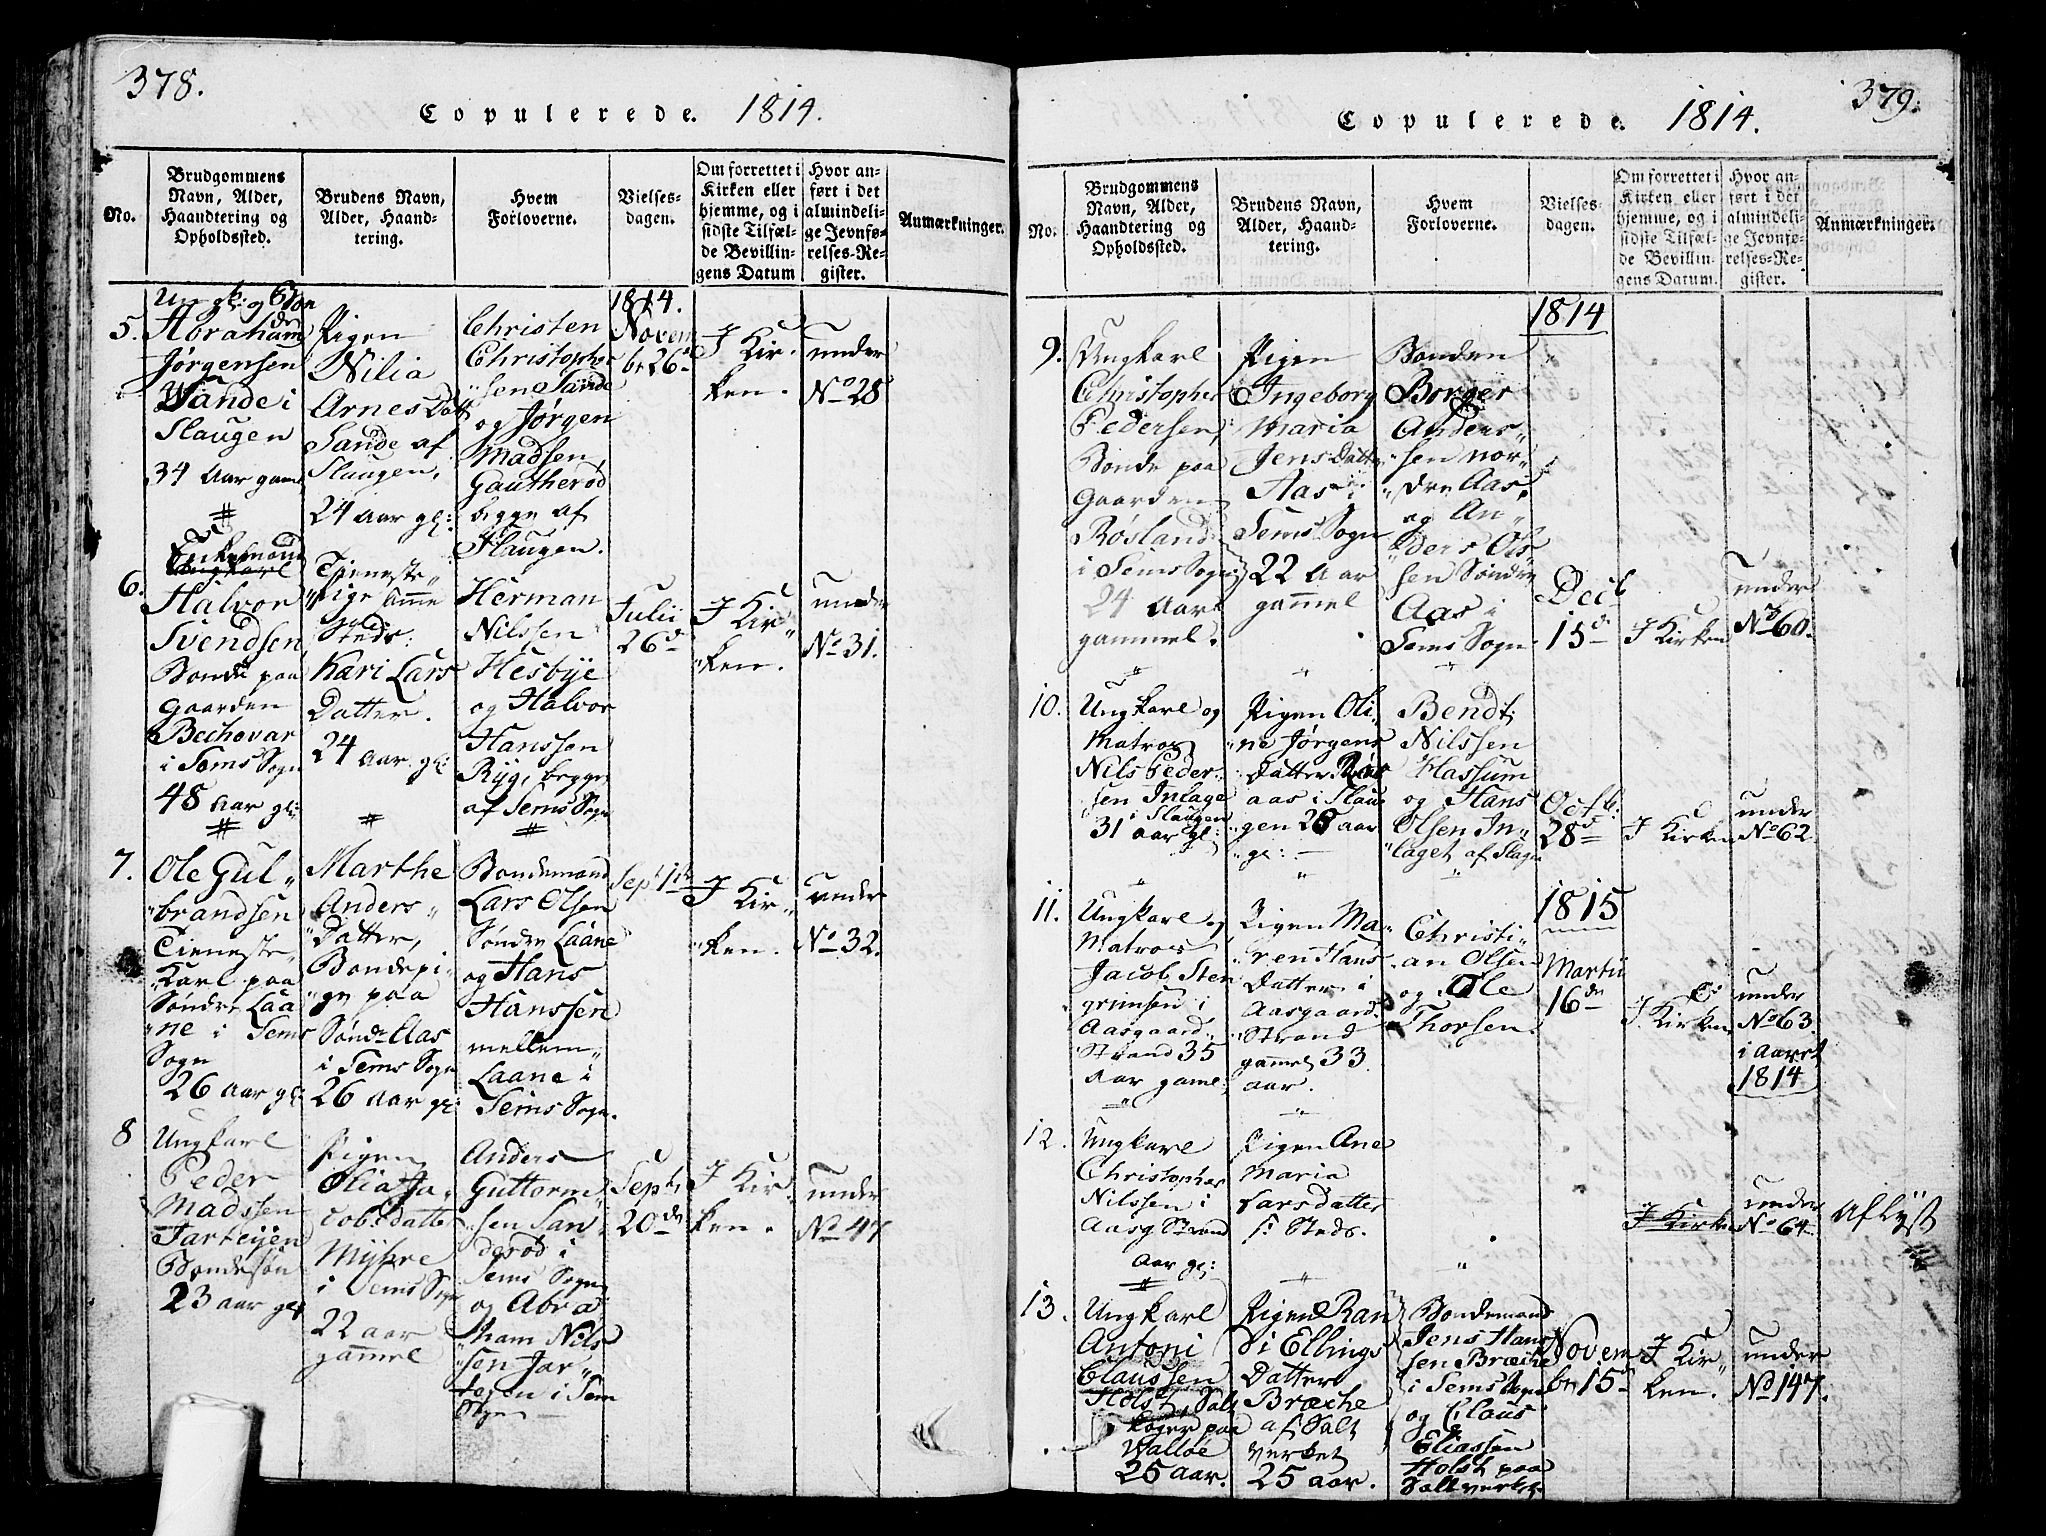 378.
Copulerede. 1814.
No.
Brudgommens
Navn, Alder,
Haandtering og
Opholdssted.
Brudens Navn,
Alder, Haand-
tering.
Hvem
Forloverne.
Vielses-
dagen.
Om forrettet i
Kirken eller
hjemme, og i
sidste Tilfæl-
de Bevillin-
gens Datum
Hvor an-
ført i det
almindeli-
ge Jevnfø-
relses-Re-
gister.
Anmærkninger.
5.
Abraham
Jørgensen
Sande i
Slaugen
34 Aar gam
Pigen
Nilia
Arnes Datt
Sande af
Slaugen,
24 aar gl:
Christen
Christopher
sen Sande
og Jørgen
Madsen,
Gautherød
begge af
Slaugen.
1814.
Novem
br 26
I Kir-
ken.
under
No 28
6.
Enkemand
Ungkarl
Halvor
Svendsen
Bonde paa
Gaarden
Bechevar
i Sems Sogn
48 Aar gl:
Tieneste
Pige samme
Steds:
Kari Lars
Datter.
24 aar gl:
Herman
Nilssen
Hesbye
og Halvor
Hanssen
Ryg, begge
af Sems Sogn
Julii
26d
I Kir
ken.
under
No 31.
7.
Ole Gul
brandsen
Tieneste
Karl paa
Søndre Laa
ne i Sems
Sogn
26 aar gl:
Marthe
Anders
Datter,
Bondepi
ge paa
Sønd Aas
i Sems Sogn
26 aar gl:
Bondemand
Lars Olsen
Søndre Laane
og Hans
Hanssen
mellem
Laane i
Sems Sogn.
Sept 1
I Kir
ken.
under
No 32.
8
Ungkarl
Peder
Madssen
Jarteyen
Bondesøn
23 aar gl
Pigen
Olia Ja
cobsdatter
Myhre
i Sems Sogn
22 aar
gammel
Anders
Guttorm
sen San
derød i
Sems Sogn
og Abra
ham Nils
sen Jar
teyen i Sem
Sogn
Septr
20de
I Kir
ken.
under
No 47
379.
Copulerede. 1814.
No.
Brudgommens
Navn, Alder,
Haandtering og
Opholdssted.
Brudens Navn,
Alder, Haand-
tering.
Hvem
Forloverne.
Vielses-
dagen.
Om forrettet i
Kirken eller
hjemme, og i
sidste Tilfæl-
de Bevillin-
gens Datum.
Hvor an-
ført i det
almindeli-
ge Jevnfø-
relses-Re-
gister.
Anmærkninger.
1814
9.
Ungkarl
Christopher
Pedersen,
Bonde paa
Gaarden
Røsland
i Sems Sogn
24 Aar
gammel.
Pigen
Ingeborg
Maria
Jens Datter
Aas i
Sems Sogn
22 Aar
gammel
Bonden
Borger
Anders
sen nor
dre Aas
og An
ders Ols
sen Søndre
Aas i
Sems Sogn
Decb
15d
I Kirken
under
No 60.
10.
Ungkarl og
Matros
Nils Peder
sen Inlage
i Slaugen
31 aar gl:
Pigen Oli
ne Jørgens
Datter
aas i Slau
gen 26 aar
gl:
Bendt
Nilssen
Hassum
og Hans
Olsen In
laget af Slagen
Octb:
28d
I Kirken
under
No 62
11.
Ungkarl og
Matros
Jacob Sten
grimsen i
Aasgaard
Strand 35
Aar gaml:
Pigen Ma
ren Hans
Datter i
Aasgaard
Strand
gammel 33
aar.
Christi
an Olsen
og Ole
Thorsen
1815
Martii
16de
I Kirken
under
No 63.
i Aaret
1814
12.
Ungkarl
Christopher
Nilssen i
Aasg Strand
Aar gl:
Pigen Ane
Maria
Larsdatter
s: Steds.
I Kirken
under
No 64
Aflyst
13.
Ungkarl
Antoni
Claussen
Holst, Salt
koger paa
Walløe
25 aar.
Pigen Ran
di Ellings
Datter
Bræche
af Salt
verket
25 aar.
Bondemand
Jens Hans
sen Bræche
i Sems Sogn
og Claus
Eliassen
Holst paa
Saltverket
Novem
br 15d
I Kir
ken.
under
No 147.